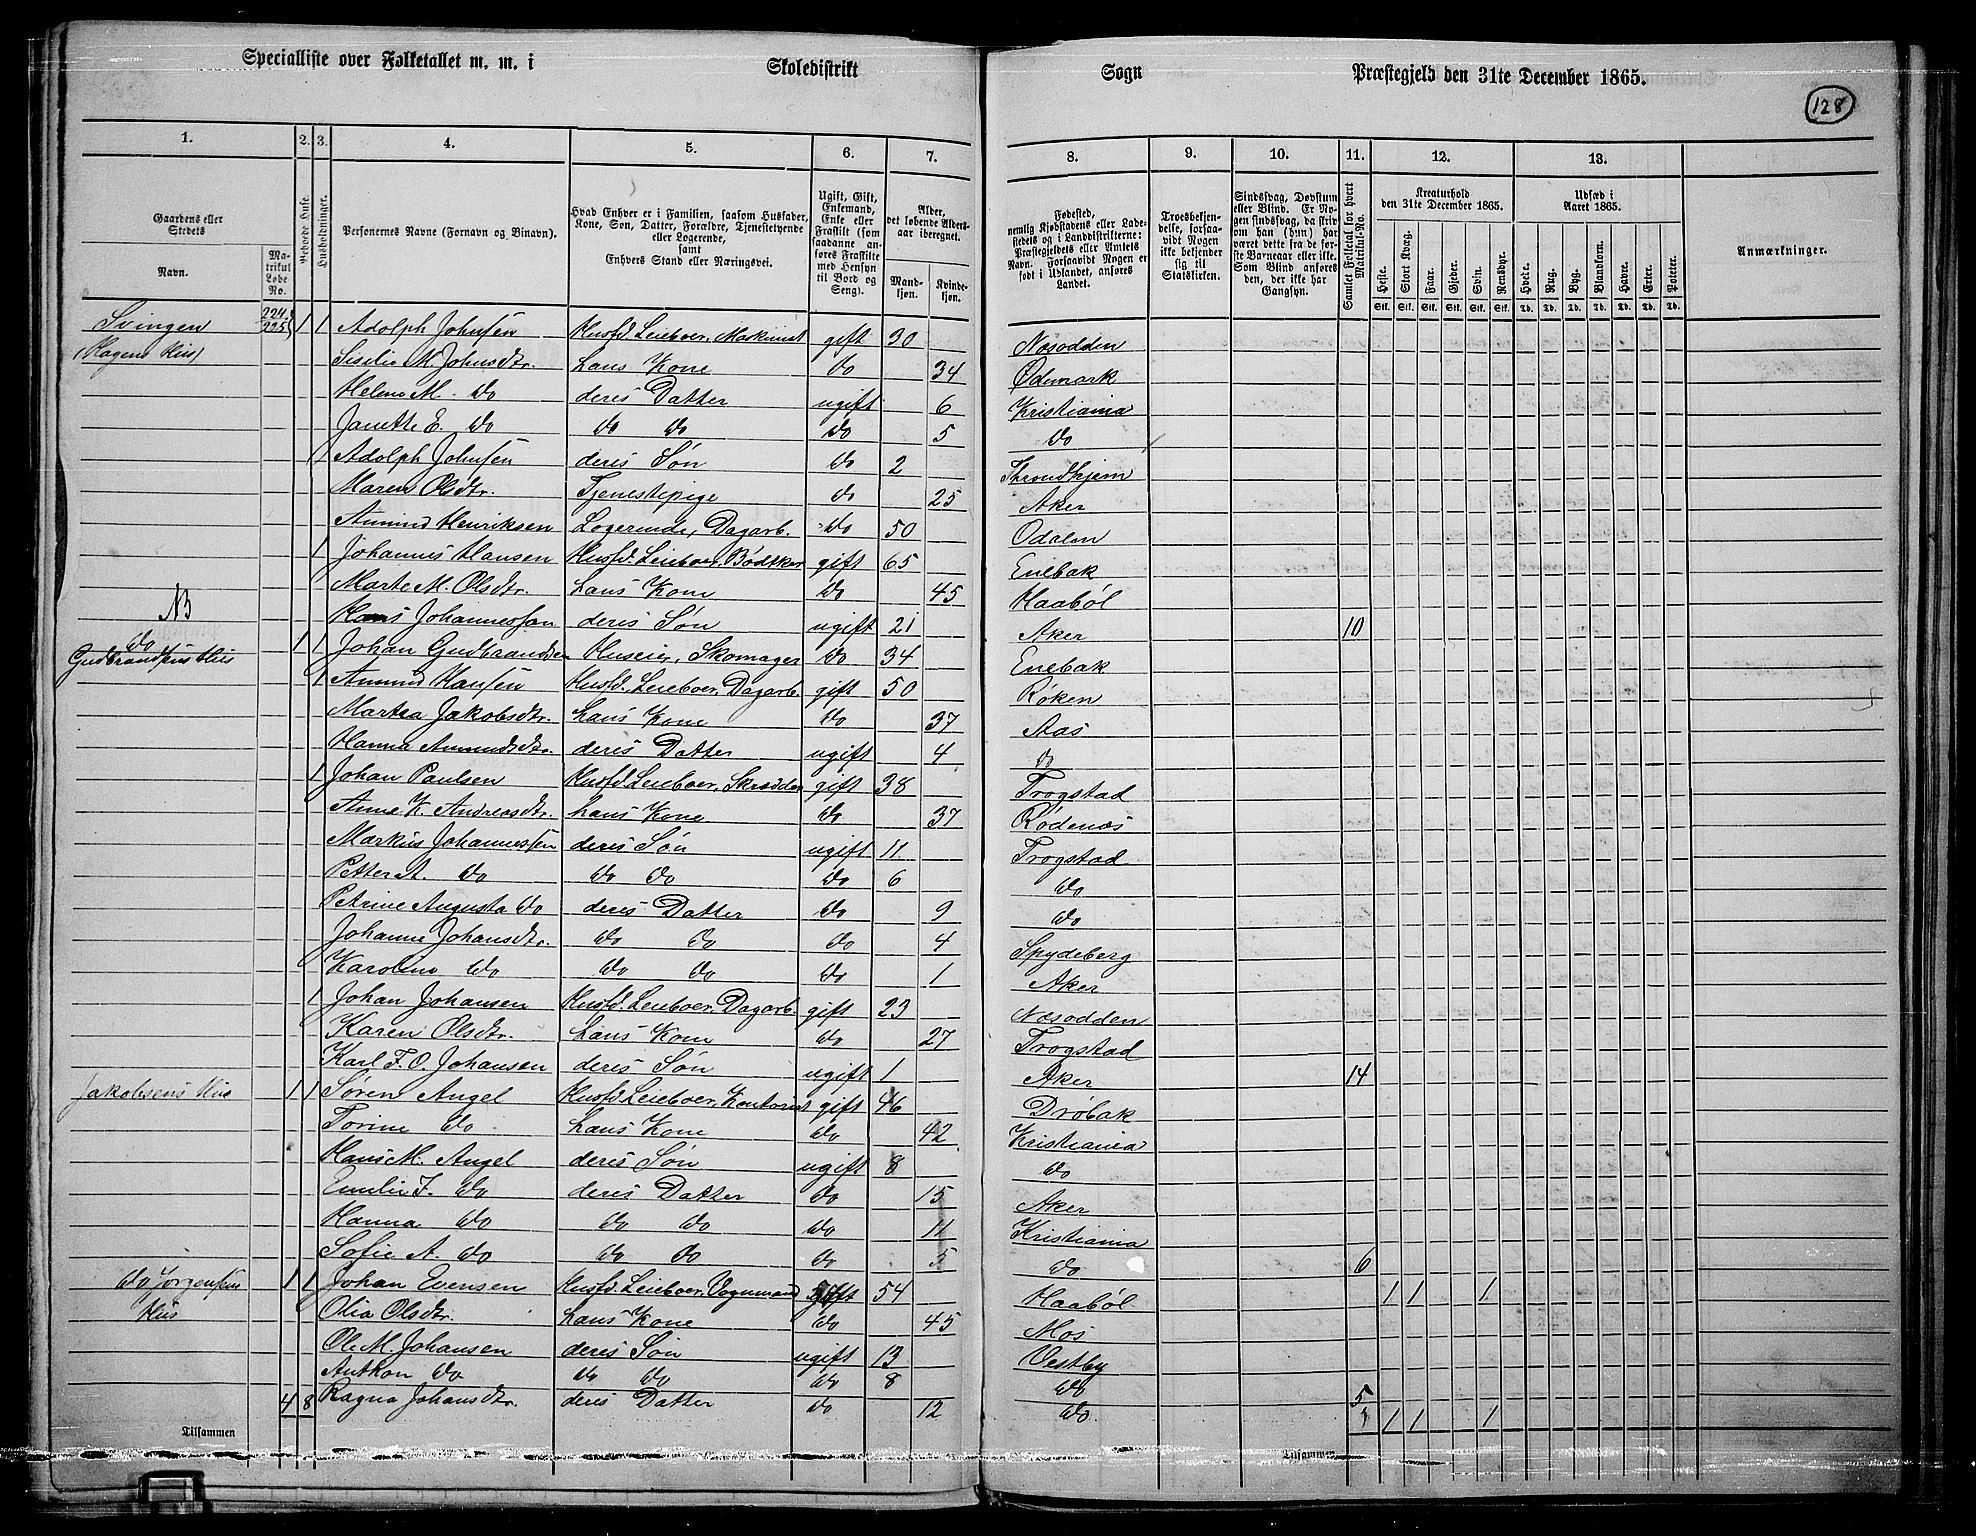 Specialliste over Folketallet m. m. i Skoledistrikt Sogn Præstegjeld den 31te December 1865.
128
1. 2. 3. 4. 5. 6. 7. 8. 9. 10. 11. 12. 13.
Gaardens eller Stedets
Navn.
Matrikul Løbe No.
Beboede Huse.
Husholdninger.
Personernes Navne (Fornavn og Binavn).
Hvad Enhver er i Familien, saasom Husfader, Kone, Søn, Datter, Forældre, Tjenestetyende eller Logerende, samt Enhvers Stand eller Næringsvei.
Ugift, Gift, Enkemand, Enke eller Fraskilt (som saadanne anføres Fraskilte med Hensyn til Bord og Seng).
Alder, det løbende Aldersaar iberegnet.
Mandkjøn. Kvindekjøn.
Fødested, nemlig Kjøbstadens eller Ladestedets og i Landdistrikterne: Præstegjeldets eller Amtets Navn. Forsaavidt Nogen er født i Udlandet, anføres Landet.
Troesbekjendelse, forsaavidt Nogen ikke bekjender sig til Statskirken.
Sindssvag, Døvstum eller Blind. Er Nogen sindssvag, da skriv om han (hun) har været dette fra de første Barneaar eller ikke. Som Blind anføres den, der ikke har Gangsyn.
Samlet Folketal for hvert Matrikul-No.
Kreaturhold den 31te December 1865.
Heste. Stort Kvæg. Faar. Gjeder. Svin. Rensdyr.
Udsæd i Aaret 1865.
Hvede. Rug. Byg. Blandkorn. Havre. Erter. Poteter.
Anmærkninger.
Stk. Stk. Stk. Stk. Stk. Stk. Td. Td. Td. Td. Td. Td. Td.
Svingen 224 225 1 1 Adolph Johnsen Husfd. Leieboer, Maskinist gift 30 Næsodden
(Hagens Hus) Sisilie M. Johnsdtr. hans Kone do 34 Ødemark
Helene M. do deres Datter ugift 6 Kristiania
Janette E. do do do do 5 do
Adolph Johnsen deres Søn do 2 Throndhjem
Maren Olsdtr. Tjenestepige do 25 Aker
Amund Henriksen Logerende, Dagarb. do 50 Odalen
1 Johannes Hansen Husfd. Leieboer, Bødtker gift 65 Enebak
Marte M. Olsdtr. hans Kone do 45 Haabøl
NB Hans Johannessen deres Søn ugift 21 Aker 10
do Gudbrandsens Hus 1 1 Johan Gudbrandsen Huseier, Skomager do 34 Enebak
1 Amund Hansen Husfd. Leieboer, Dagarb. gift 50 Røken
Martea Jakobsdtr. hans Kone do 37 Aas
Hanna Amundsdtr. deres Datter ugift 4 do
1 Johan Paulsen Husfd. Leieboer, Skrædder gift 38 Trøgstad
Anne K. Andreasdtr. hans Kone do 37 Rødenæs
Markus Johannessen deres Søn ugift 11 Trøgstad
Petter A. do do do do 6 do
Petrine Augusta do deres Datter do 9 do
Johanne Johansdtr. do do do 4 Spydeberg
Karoline do do do do 1 Aker
1 Johan Johansen Husfd. Leieboer, Dagarb. gift 23 Næsodden
Karen Olsdtr. hans Kone do 27 Trøgstad
Karl F. O. Johansen deres Søn ugift 1 Aker 14
Jakobsens Hus 1 1 Søren Angel Husfd. Leieboer, Kontorist gift 46 Drøbak
Torine do hans Kone do 42 Kristiania
Hans M. Angel deres Søn ugift 8 do
Emilie F. do deres Datter do 15 Aker
Hanna do do do do 11 Kristiania
Sofie A. do do do do 5 do 6
do Jørgensens Hus 1 1 Johan Evensen Husfd. Leieboer, Vognmand gift 54 Haabøl 1 1 1
Olia Olsdtr. hans Kone do 45 Mos
Ole M. Johansen deres Søn ugift 13 Vestby
Anthon do do do do 8 do
4 8 Ragna Johansdtr. deres Datter do 12 do 5 1 1 1
Tilsammen Tilsammen